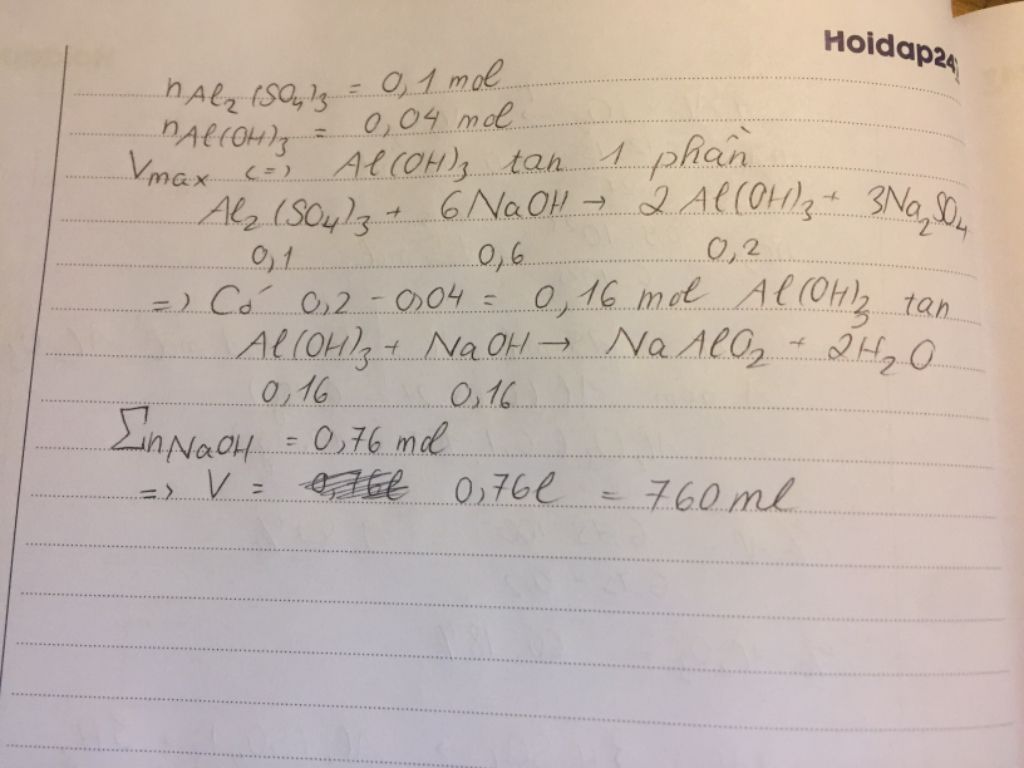 Hoidap247
nAl₂(SO₄)₃ = 0,1 mol
nAl(OH)₃ = 0,04 mol
Vmax <=> Al(OH)₃ tan 1 phần
Al₂(SO₄)₃ + 6NaOH → 2Al(OH)₃ + 3Na₂SO₄
0,1 0,6 0,2
=> Có 0,2 - 0,04 = 0,16 mol Al(OH)₃ tan
Al(OH)₃ + NaOH → NaAlO₂ + 2H₂O
0,16 0,16
∑nNaOH = 0,76 mol
=> V = 0,76l = 760ml